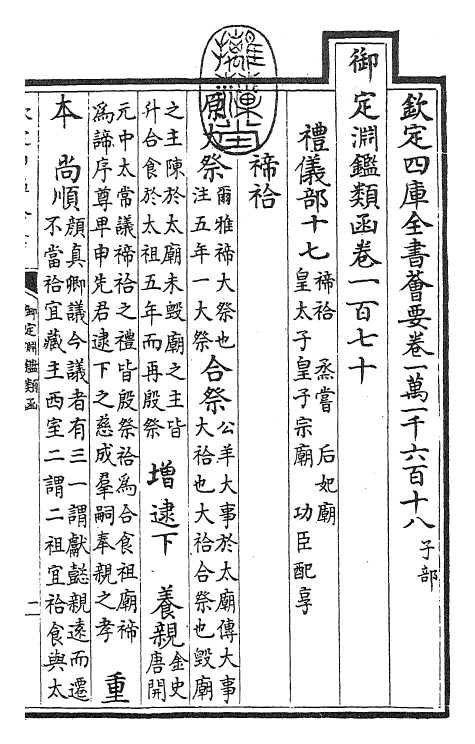 欽定四庫全書薈要卷一萬一千六百十八 子部
御定淵鑑類函卷一百七十
禮儀部十七 禘祫 烝嘗 后妃廟
皇太子皇子宗廟 功臣配享
禘祫
原大祭 爾雅禘大祭也
注五年一大祭
合祭 公羊大事於太廟傳大事
大祫也大祫合祭也毀廟
之主陳於太廟未毀廟之主皆
升合食於太祖五年而再殷祭
增逮下 養親 金史
唐開
元中太常議禘祫之禮皆殷祭祫為合食祖廟禘
為諦序尊卑申先君逮下之慈成羣嗣奉親之孝
重
本 尚順 顏真卿議今議者有三一謂獻懿親遠而遷
不當祫宜藏主西室二謂二祖宜祫食與太
御定淵鑑類函